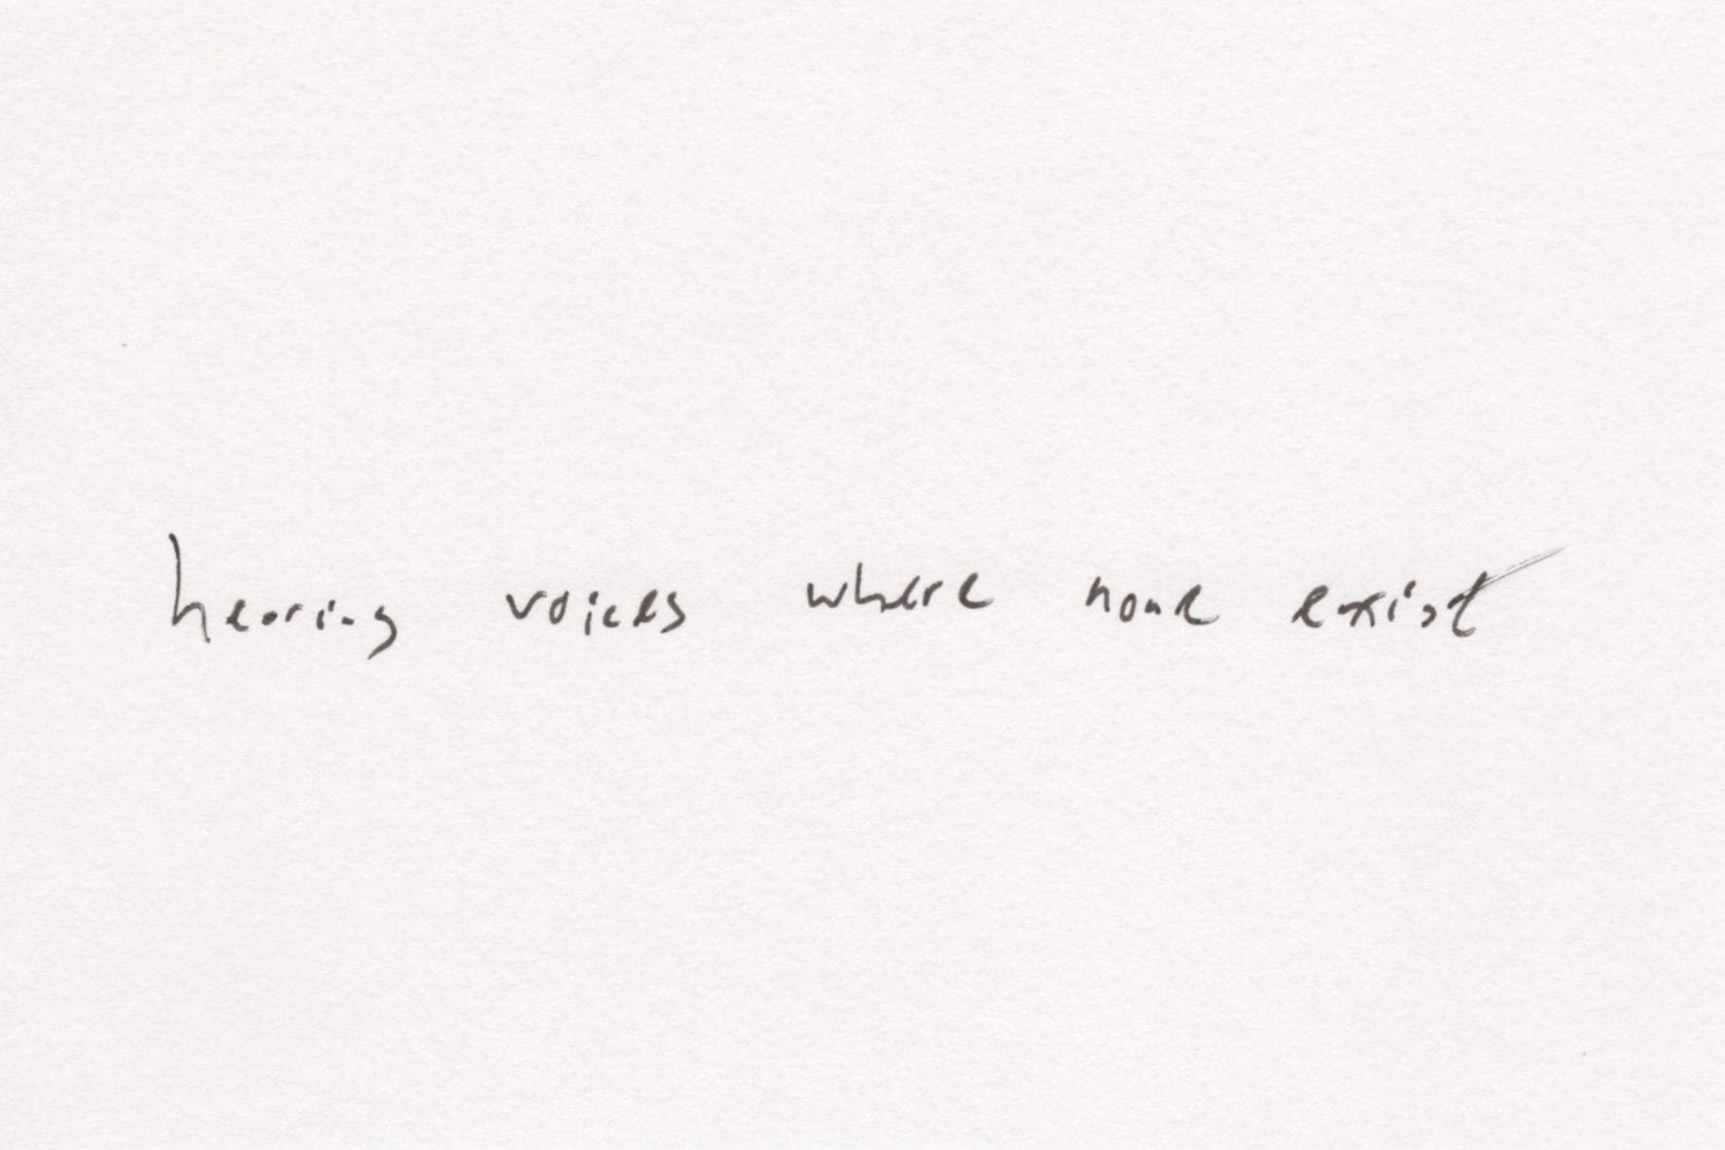 hearing voices where none exist